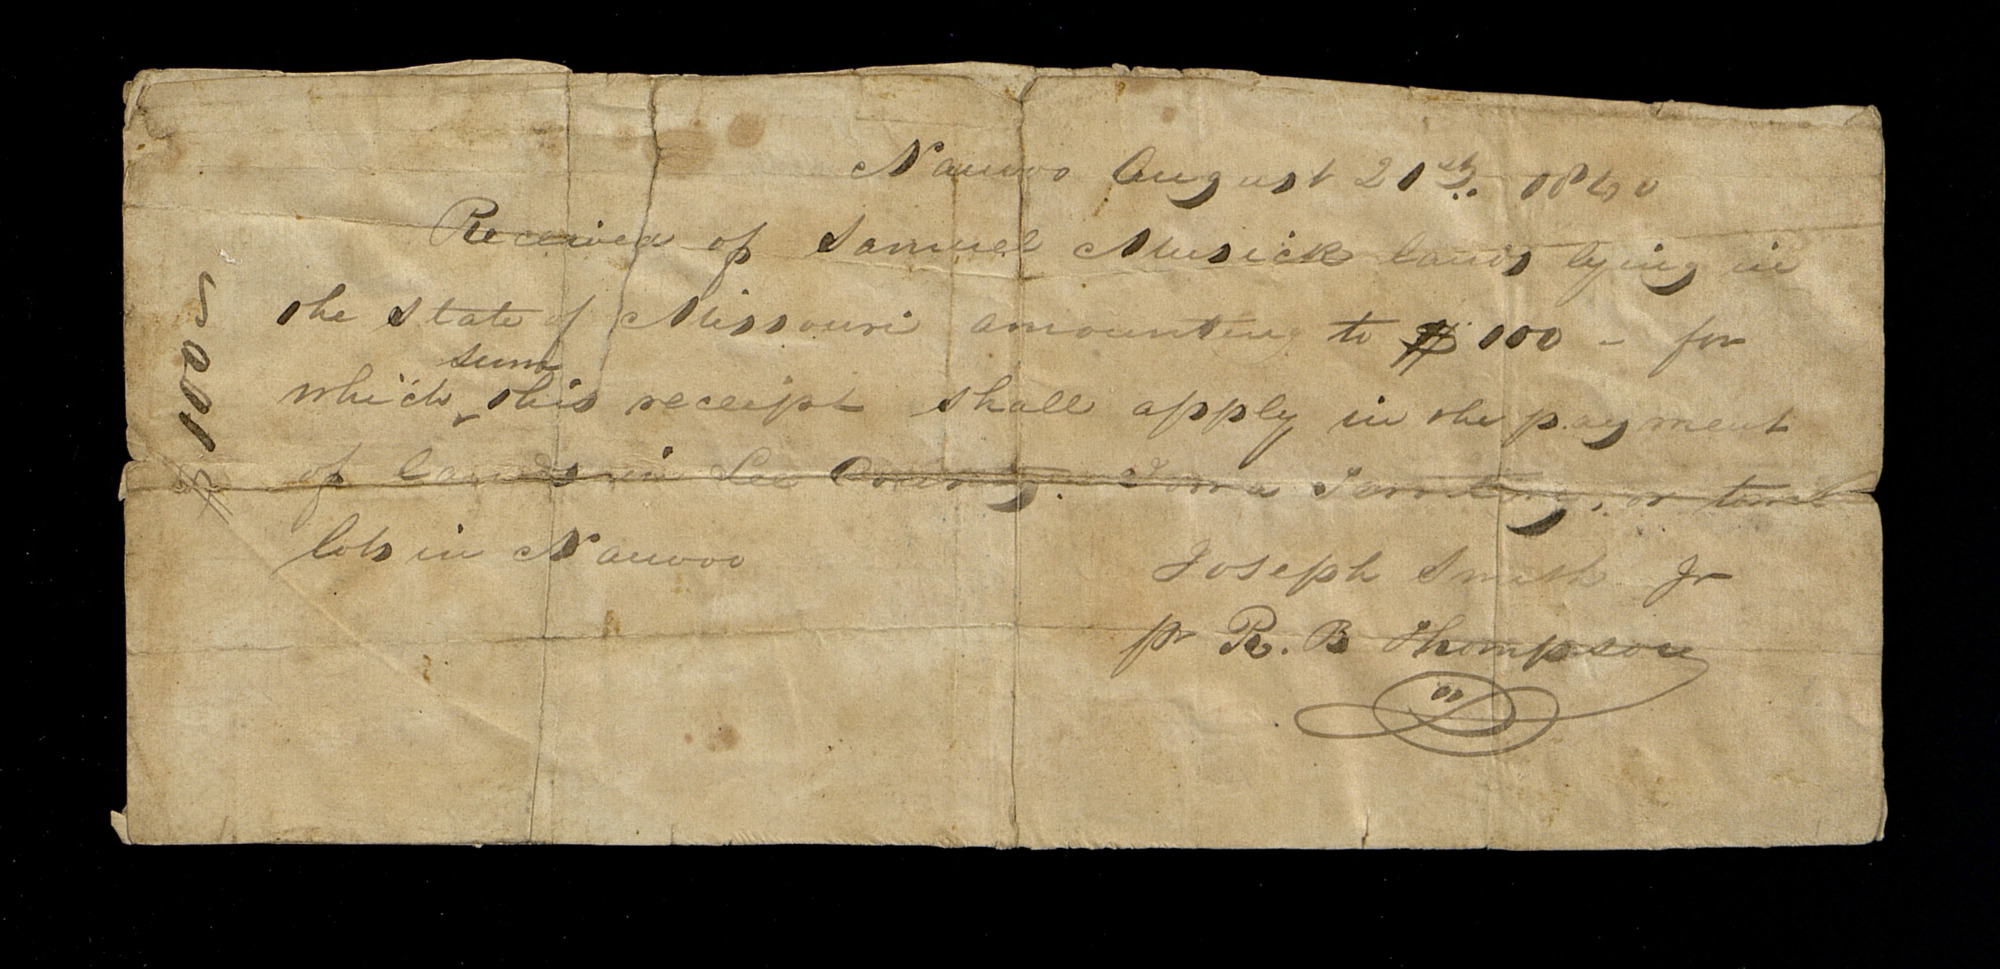 Nauvoo August 21st. 1840
Received of Samuel Musick lands lying in
the State of Missouri amounting to $100 – for
sum
which this receipt shall apply in the payment
of lands in Lee County. Iowa Territory, or town
lots in Nauvoo
Joseph Smith Jr
pr R. B Thompson
$ 100